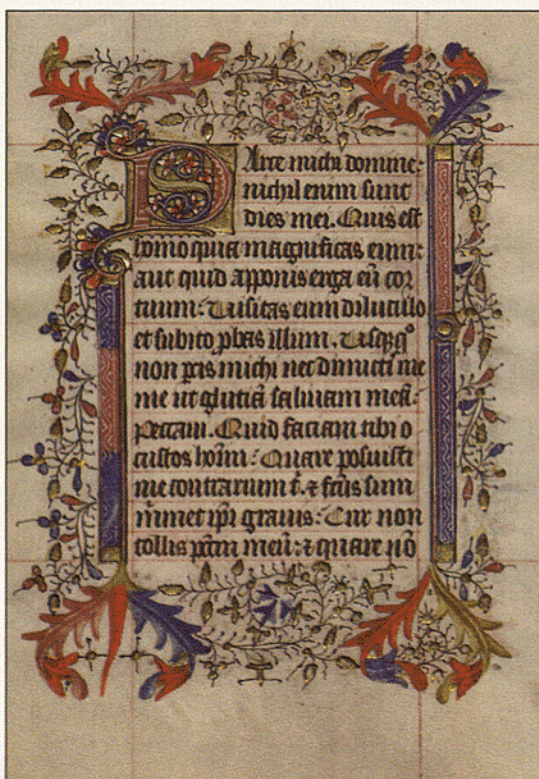 Parce michi domine:
nichil enim sunt
dies mei. Quis est
homo quia magnificas eum:
aut quid apponis erga eū cor
tuum: Visitas eum diluculo
et subito ꝓbas illum. Usqꝫq°
non ꝑcis michi nec dimittis me
me ut glutiā saliuam meā:
Peccaui. Quid faciam tibi o
custos homī: Quare posuisti
me contrarium t̄. ⁊ fctūs sum
m̄imet ip̄i grauis: Cur non
tollis pc̄tm meū: ⁊ quare nō